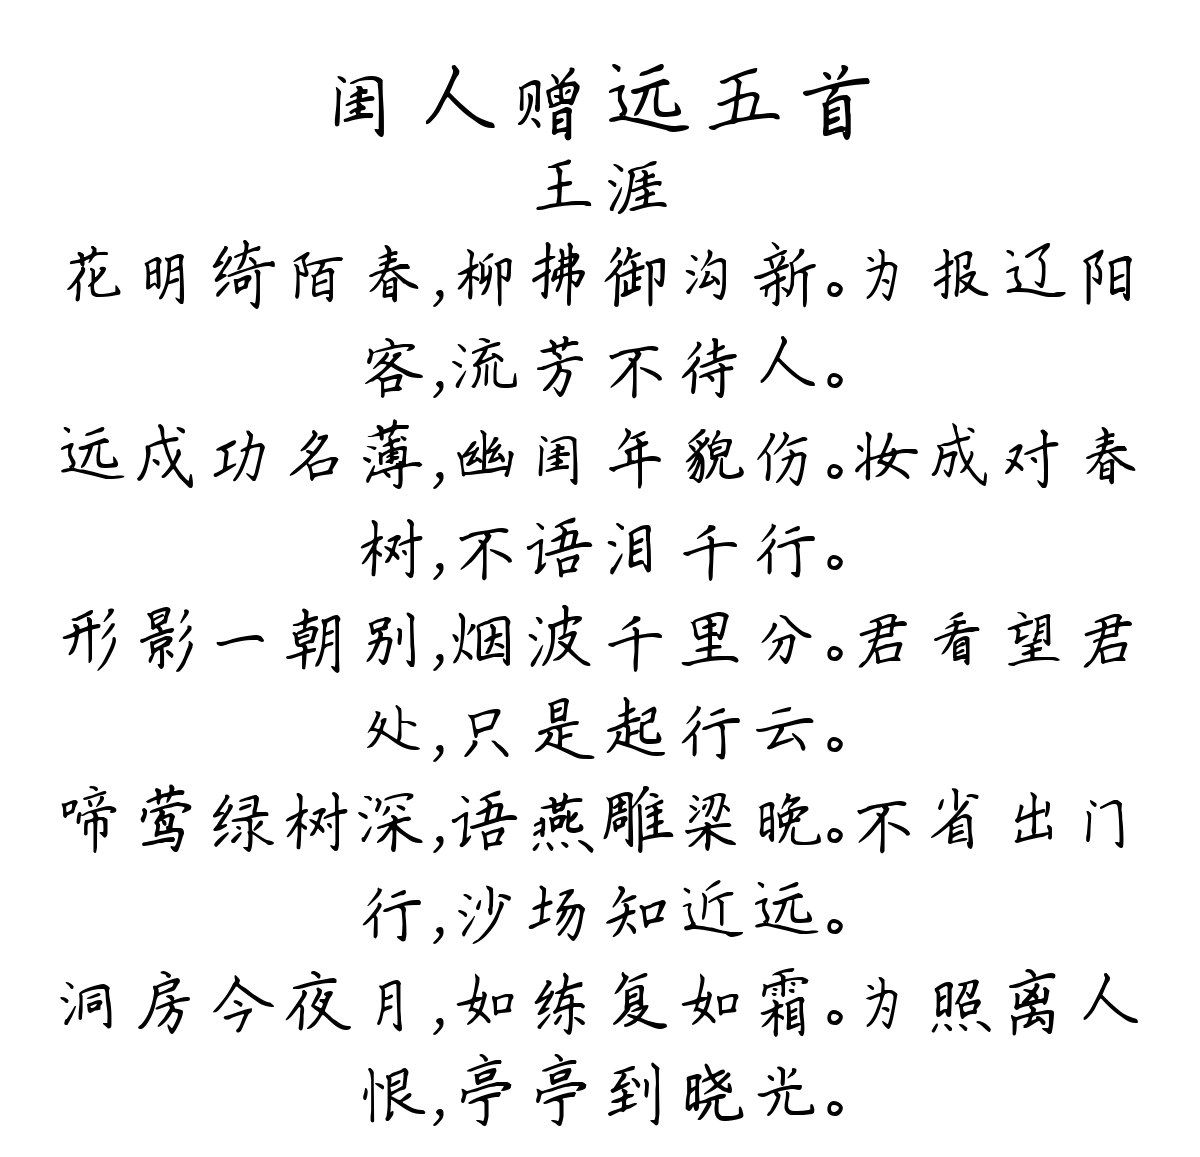 闺人赠远五首
王涯
花明绮陌春,柳拂御沟新。为报辽阳
客,流芳不待人。
远戍功名薄,幽闺年貌伤。妆成对春
树,不语泪千行。
形影一朝别,烟波千里分。君看望君
处,只是起行云。
啼莺绿树深,语燕雕梁晚。不省出门
行,沙场知近远。
洞房今夜月,如练复如霜。为照离人
恨,亭亭到晓光。